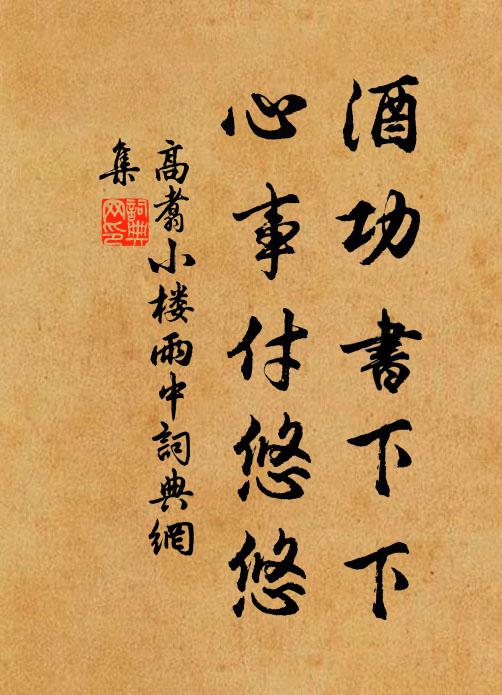 酒功書下下
心事付悠悠
高翥小楼雨中詞典網
集
詞典网印